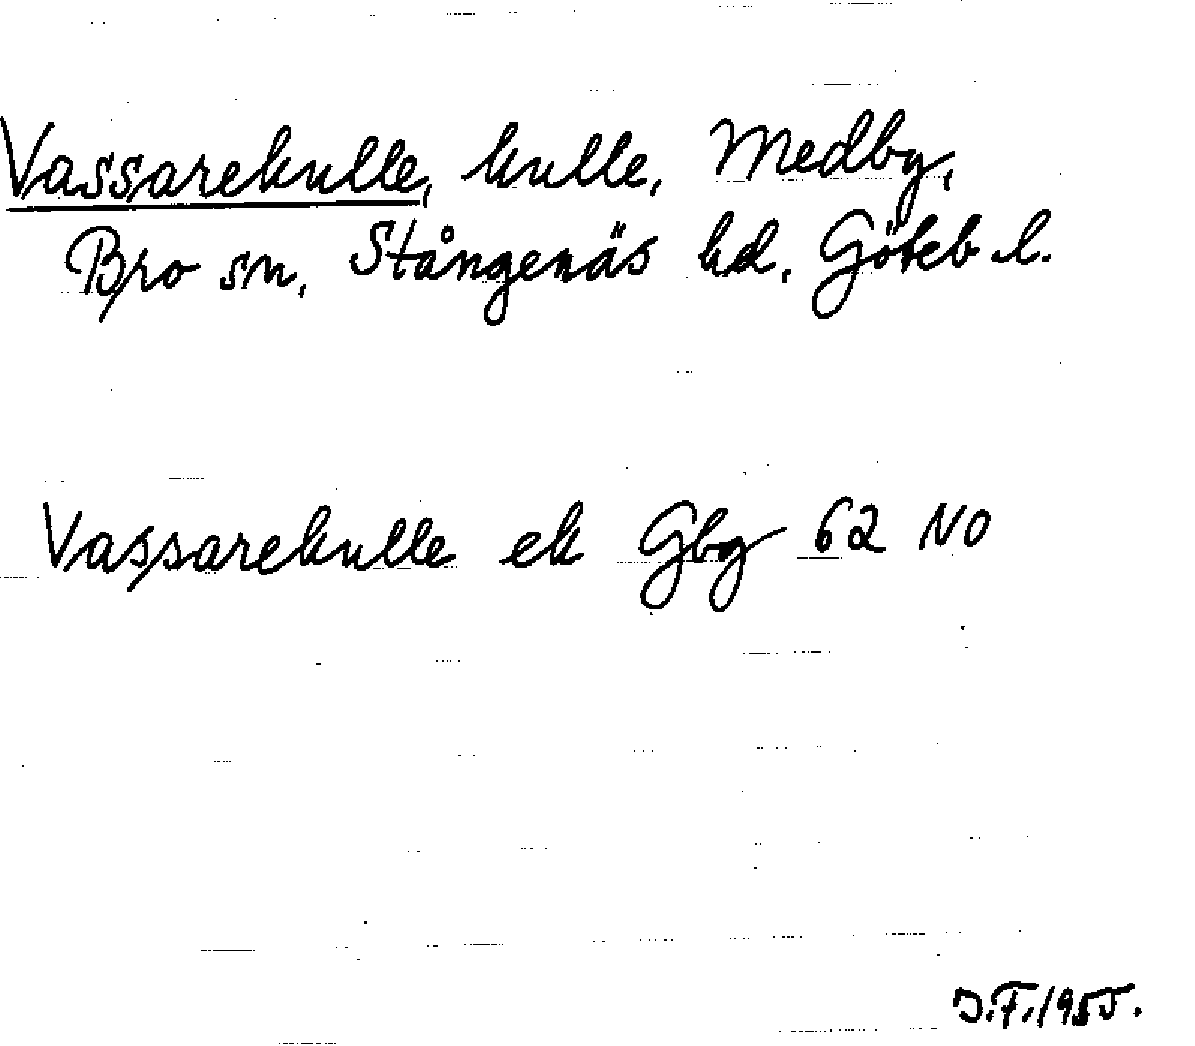 Vassarekulle, kulle, Medby,
Bro sn, Stångenäs hd, Göteb l.
Vassarekulle ek Gbg 62 NO
J.F. 1955.